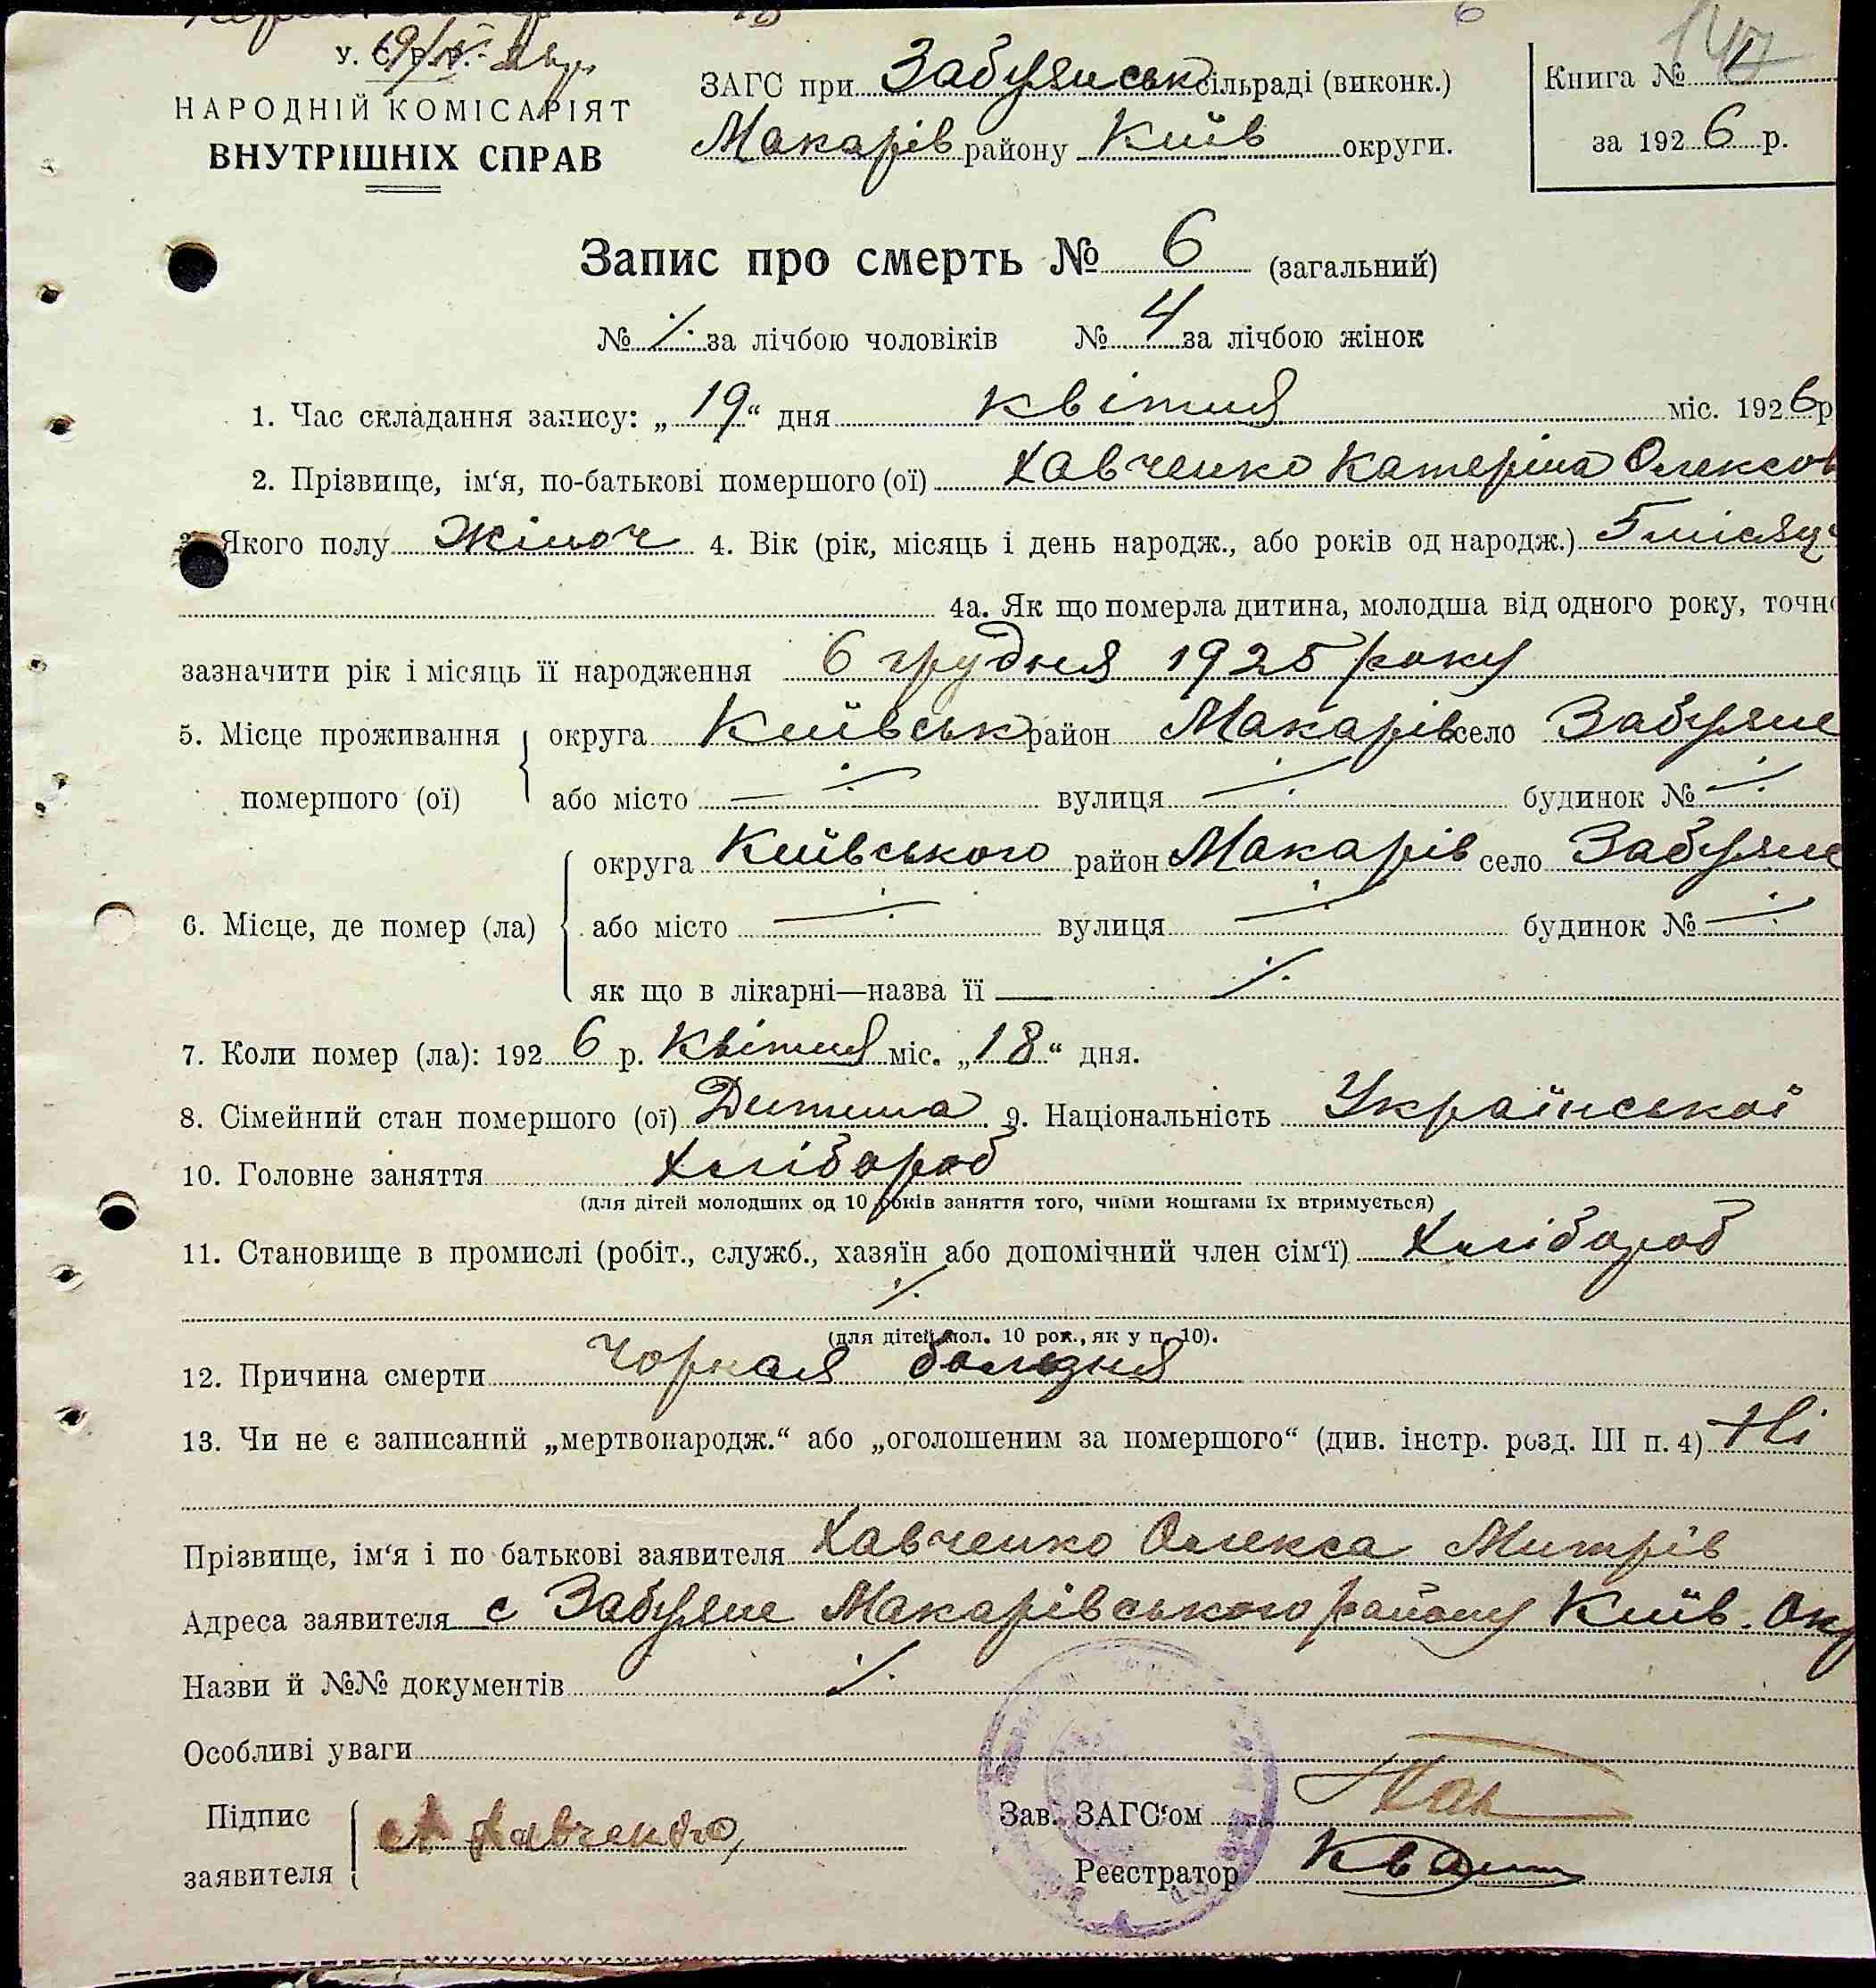 У. С. Р. Р.
19/IV
НАРОДНІЙ КОМІСАРІЯТ
ВНУТРІШНІХ СПРАВ
ЗАГС при Забуянськ сільраді (виконк.)
Макарів району Київ округи.
Книга № 1
147
за 1926 р.
6
Запис про смерть № 6 (загальний)
№ ⁒ за лічбою чоловіків № 4 за лічбою жінок
1. Час складання запису: „19“ дня квітня міс. 1926 р
2. Прізвище, ім‘я, по-батькові помершого (ої) Хавченко Катеріна Олексов
3. Якого полу Жіноч 4. Вік (рік, місяць і день народж., або років од народж.) 5 місяц
4а. Як що померла дитина, молодша від одного року, точно
зазначити рік і місяць її народження 6 грудня 1925 року
5. Місце проживання округа Київськ район Макарів село Забуяне
помершого (ої) або місто ⁒ вулиця ⁒ будинок № ⁒
округа Київського район Макарів село Забуяне
6. Місце, де помер (ла) або місто ⁒ вулиця ⁒ будинок № ⁒
як що в лікарні—назва її ⁒
7. Коли помер (ла): 1926 р. Квітня міс. „18“ дня.
8. Сімейний стан помершого (ої) Дитина 9. Національність Української
10. Головне заняття Хлібороб
(для дітей молодших од 10 років заняття того, чиїми коштами їх втримується)
11. Становище в промислі (робіт., служб., хазяїн або допомічний член сім‘ї) Хлібороб
⁒
(для дітей мол. 10 рок., як у п. 10).
12. Причина смерти Чорная болезня
13. Чи не є записаний „мертвонародж.“ або „оголошеним за помершого“ (див. інстр. розд. III п. 4) Ні
Прізвище, ім‘я і по батькові заявителя Хавченко Олекса Митрів
Адреса заявителя с Забуяне Макарівського району Київ. Окр
Назви й №№ документів ⁒
Особливі уваги
Підпис
заявителя
А Хавченко
Зав. ЗАГС‘ом
Реєстратор